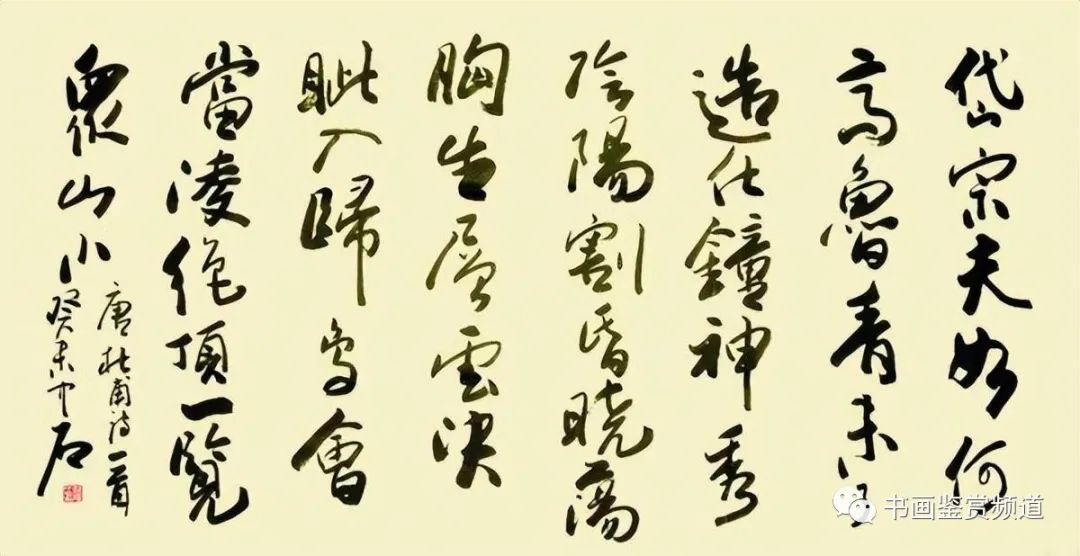 岱宗夫如何
齊魯青未了
造化鐘神秀
陰陽割昏曉蕩
胸生層雲決
眥入歸鳥會
當凌絕頂一覽
眾山小
唐杜甫詩一首
癸未中石
书画鉴赏频道